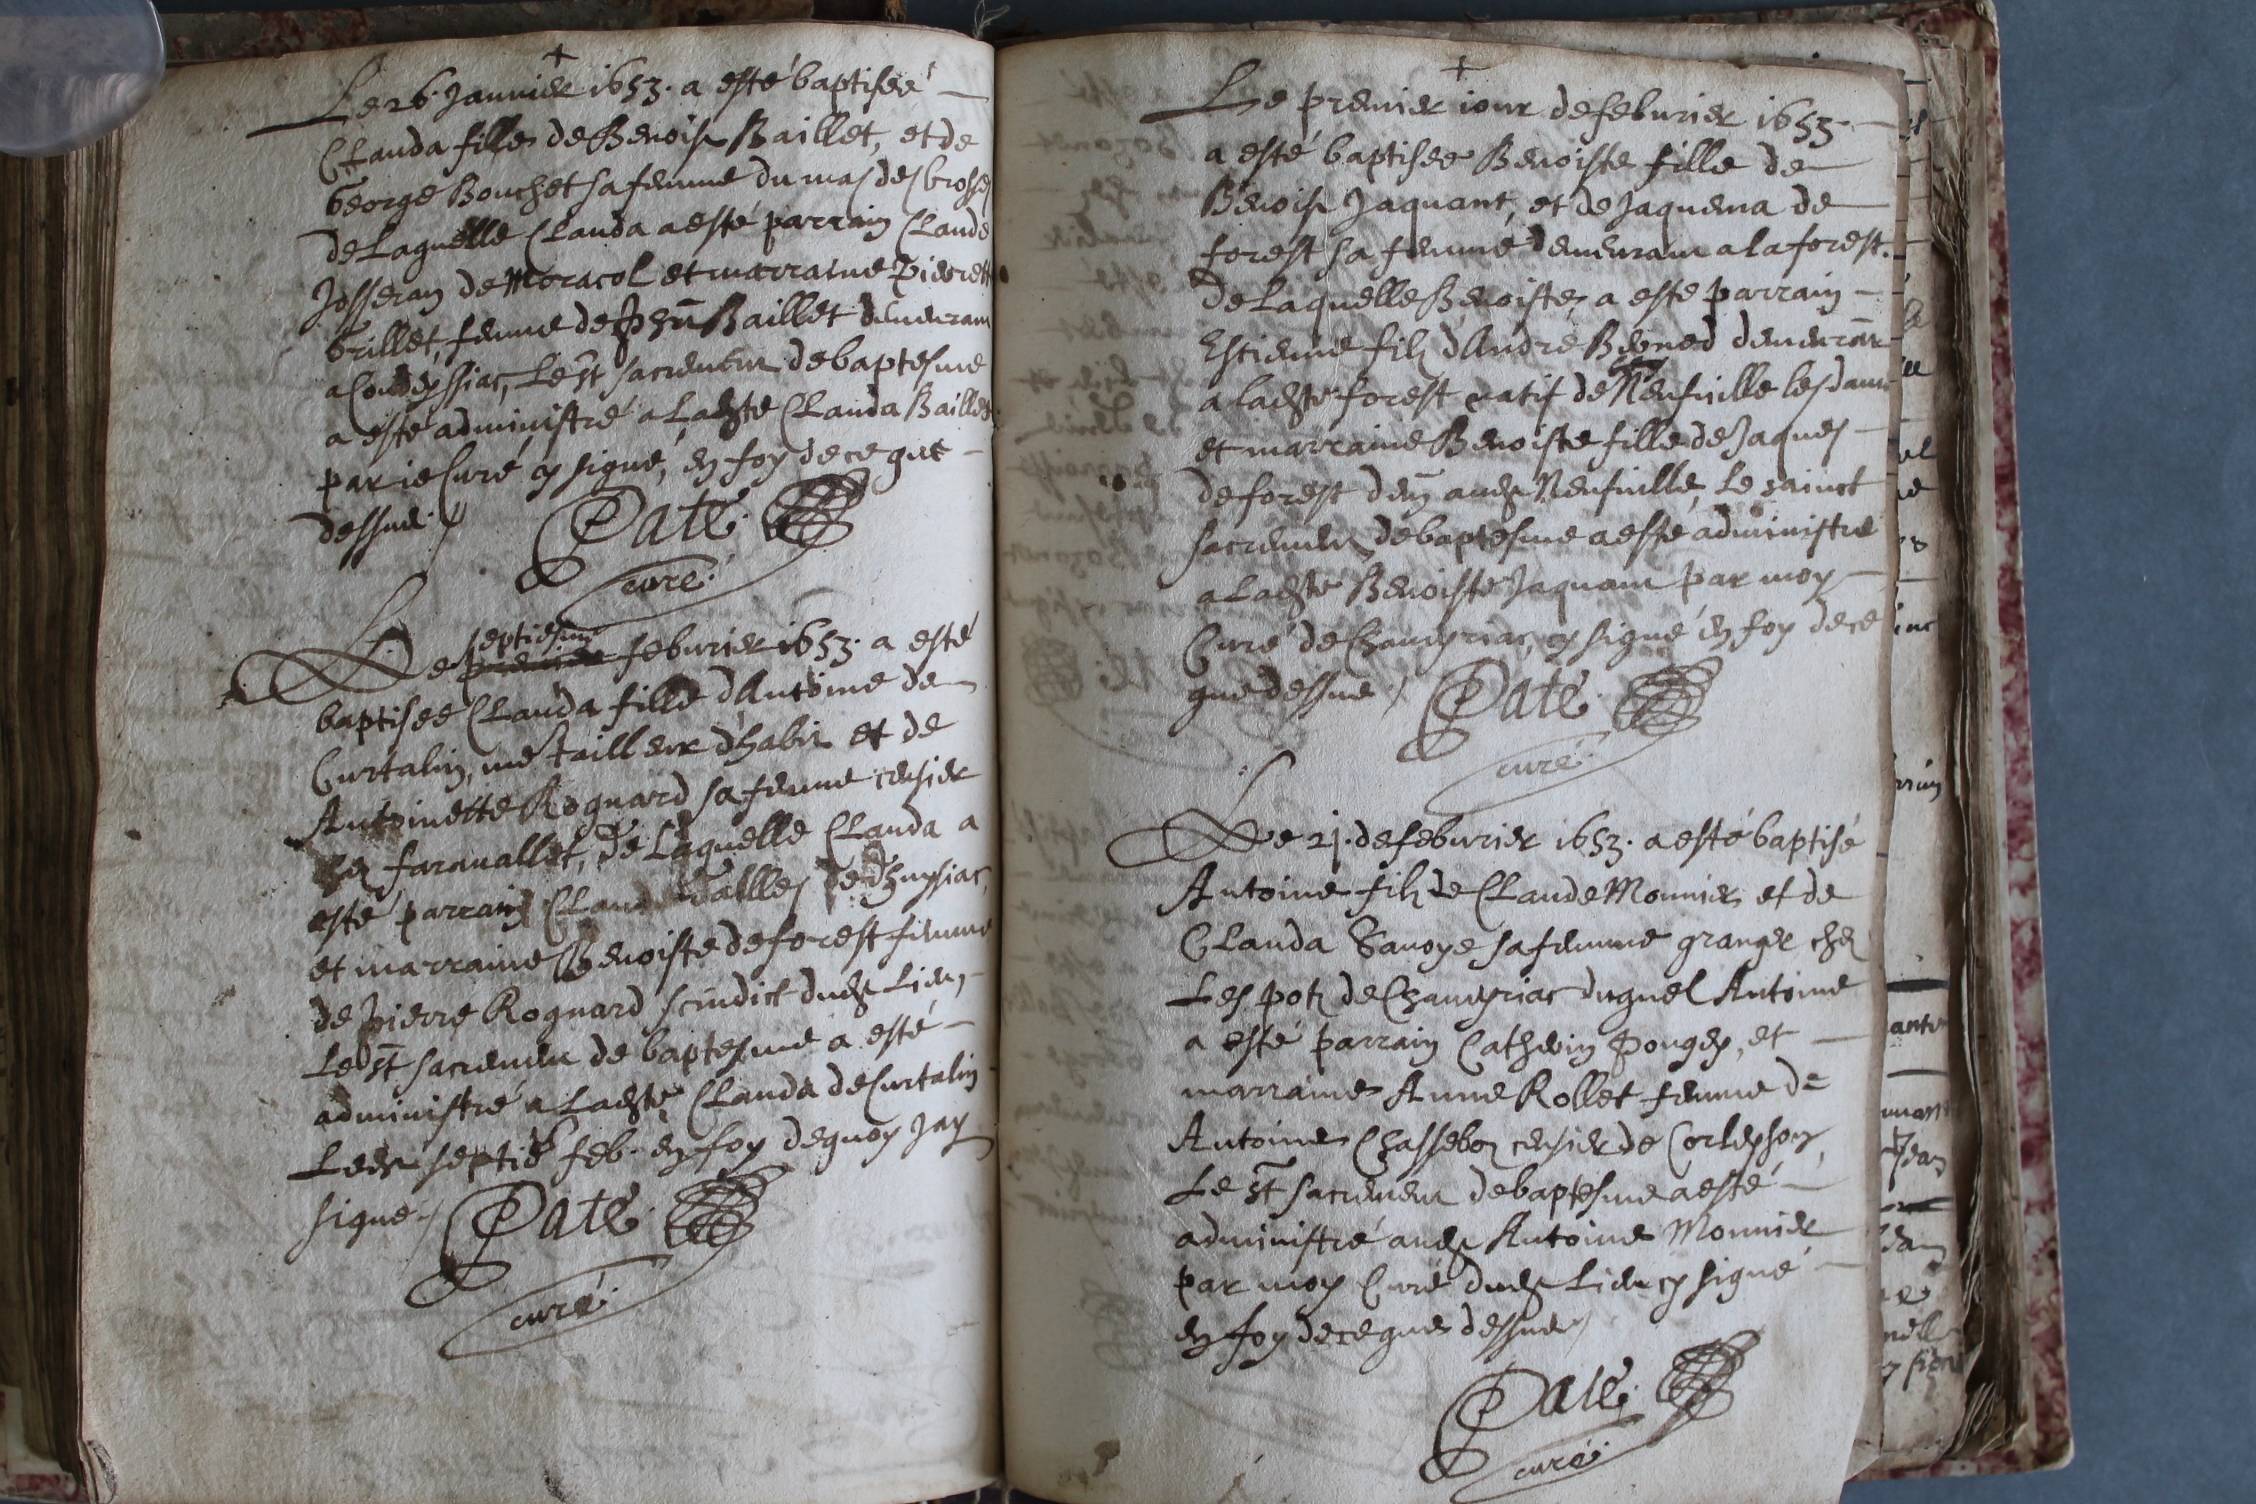 +
Le 26. Januier 1653. a esté baptisée
Clauda fille de Benoist Baillet, et de
George Bouchet sa femme du mas des Crosses
de Laquelle Clauda a esté parrain Claude
Josseran de Moracol et marraine Pierrett
Grillet, femme de Baillet demeuram
a Condeyssiac, Le st sacrement de baptesme
a esté administré a Ladte Clauda Baillet
par ie Curé cy signé, en foy de ce que
dessus.
Paté.
curé.
Le septiesme
premier feburier 1653. a esté
baptisee Clauda fille d'Antoine de
Curtalin, me tailleur d'habit et de
Antoinette Roguard sa femme censier
chez farauallet, de Laquelle Clauda a
esté parrain Claude de
et marraine Benoiste deforest femme
de pierre Roguard scindict dudt Lieu,
Le st sacremen de baptesme a esté
administré a Ladte Clauda de Curtalin
Ledt septie feb. en foy dequoy Jay
signé.
Paté.
curé.
+
Le premier iour defeburier 1653.
a esté baptisee Benoiste fille de
Benoist Jaquant, et de Jaquema de
forest sa femme demeuram a la forest.
de Laquelle Benoiste, a esté parrain
Estienne filz d'André demeurant
a ladte forest natif de Neufuille les dam
et marraine Benoiste fille de Jaques
deforest dem audt Neufuille, Le sainct
sacremen de baptesme a esté administré
a Ladte Benoiste Jaquam par moy
Curé de Chaueyriac, cy signé en foy de ce
que dessus
Paté.
curé.
Le 21. defeburier 1653. a esté baptisé
Antoine filz de Claude Monnier et de
Clauda Sauoye sa femme granger chez
Les potz de Chaueyriac duquel Antoine
a esté parrain Catherin Pougez, et
marraine Anne Rollet femme de
Antoine Chasseboz censier de
Le st sacremen de baptesme a esté
administré audt Antoine Monnier
par moy Curé dudt Lieu cy signé
en foy de ce que dessus
Paté.
curé.